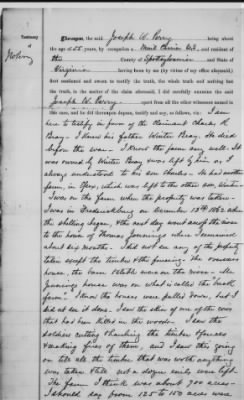 Testimony
of
Thereupon, the said Joseph W. Perry being about
the age of 55 years, by occupation a Mail Carrier U.S., and resident of
the County of Spottsylvania and State of
Virginia having been by me (by virtue of my office aforesaid)
first cautioned and sworn to testify the truth, the whole truth and nothing but
the truth, in the matter of the claim aforesaid, I did carefully examine the said
Joseph W. Perry apart from all the other witnesses named in
this case, and he did thereupon depose, testify and say, as follows, viz: I am
here to testify in favor of the Claimant Charles R.
Bray. I knew his father Winter Bray. He died
before the war. I know the farm very well. It
was owned by Winter Bray & was left by him as I
always understood to his son Charles. He had another
farm, in Essex, which was left to the other son, Winter.
I was on the farm when the property was taken.
I was in Fredericksburg on December 13th 1862 when
the shelling began & the next day went across the river
to the home of Thomas Jennings where I remained
about six months. I did not see any of the property
taken except the timber & the fencing. The overseers
house, the barn & stable were on the river. Mr
Jennings house was on what is called the back
farm. I know the houses were pulled down, but I
did not see it done. I saw the skin of one of the cows
that had been killed in the woods. I saw the
soldiers cutting & hauling the timber & fences
& making fires of them, and I saw this going
on till all the timber that was worth anything
was taken & till not a dozen rails were left.
The farm I think was about 700 acres.
I should say from 125 to 150 acres were